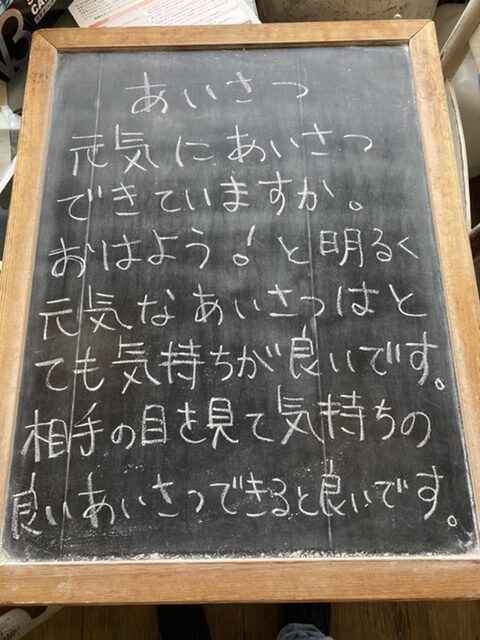 あいさつ
元気にあいさつ
できていますか。
おはよう!と明るく
元気なあいさつはと
ても気持ちが良いです。
相手の目を見て気持ちの
良いあいさつできると良いです。